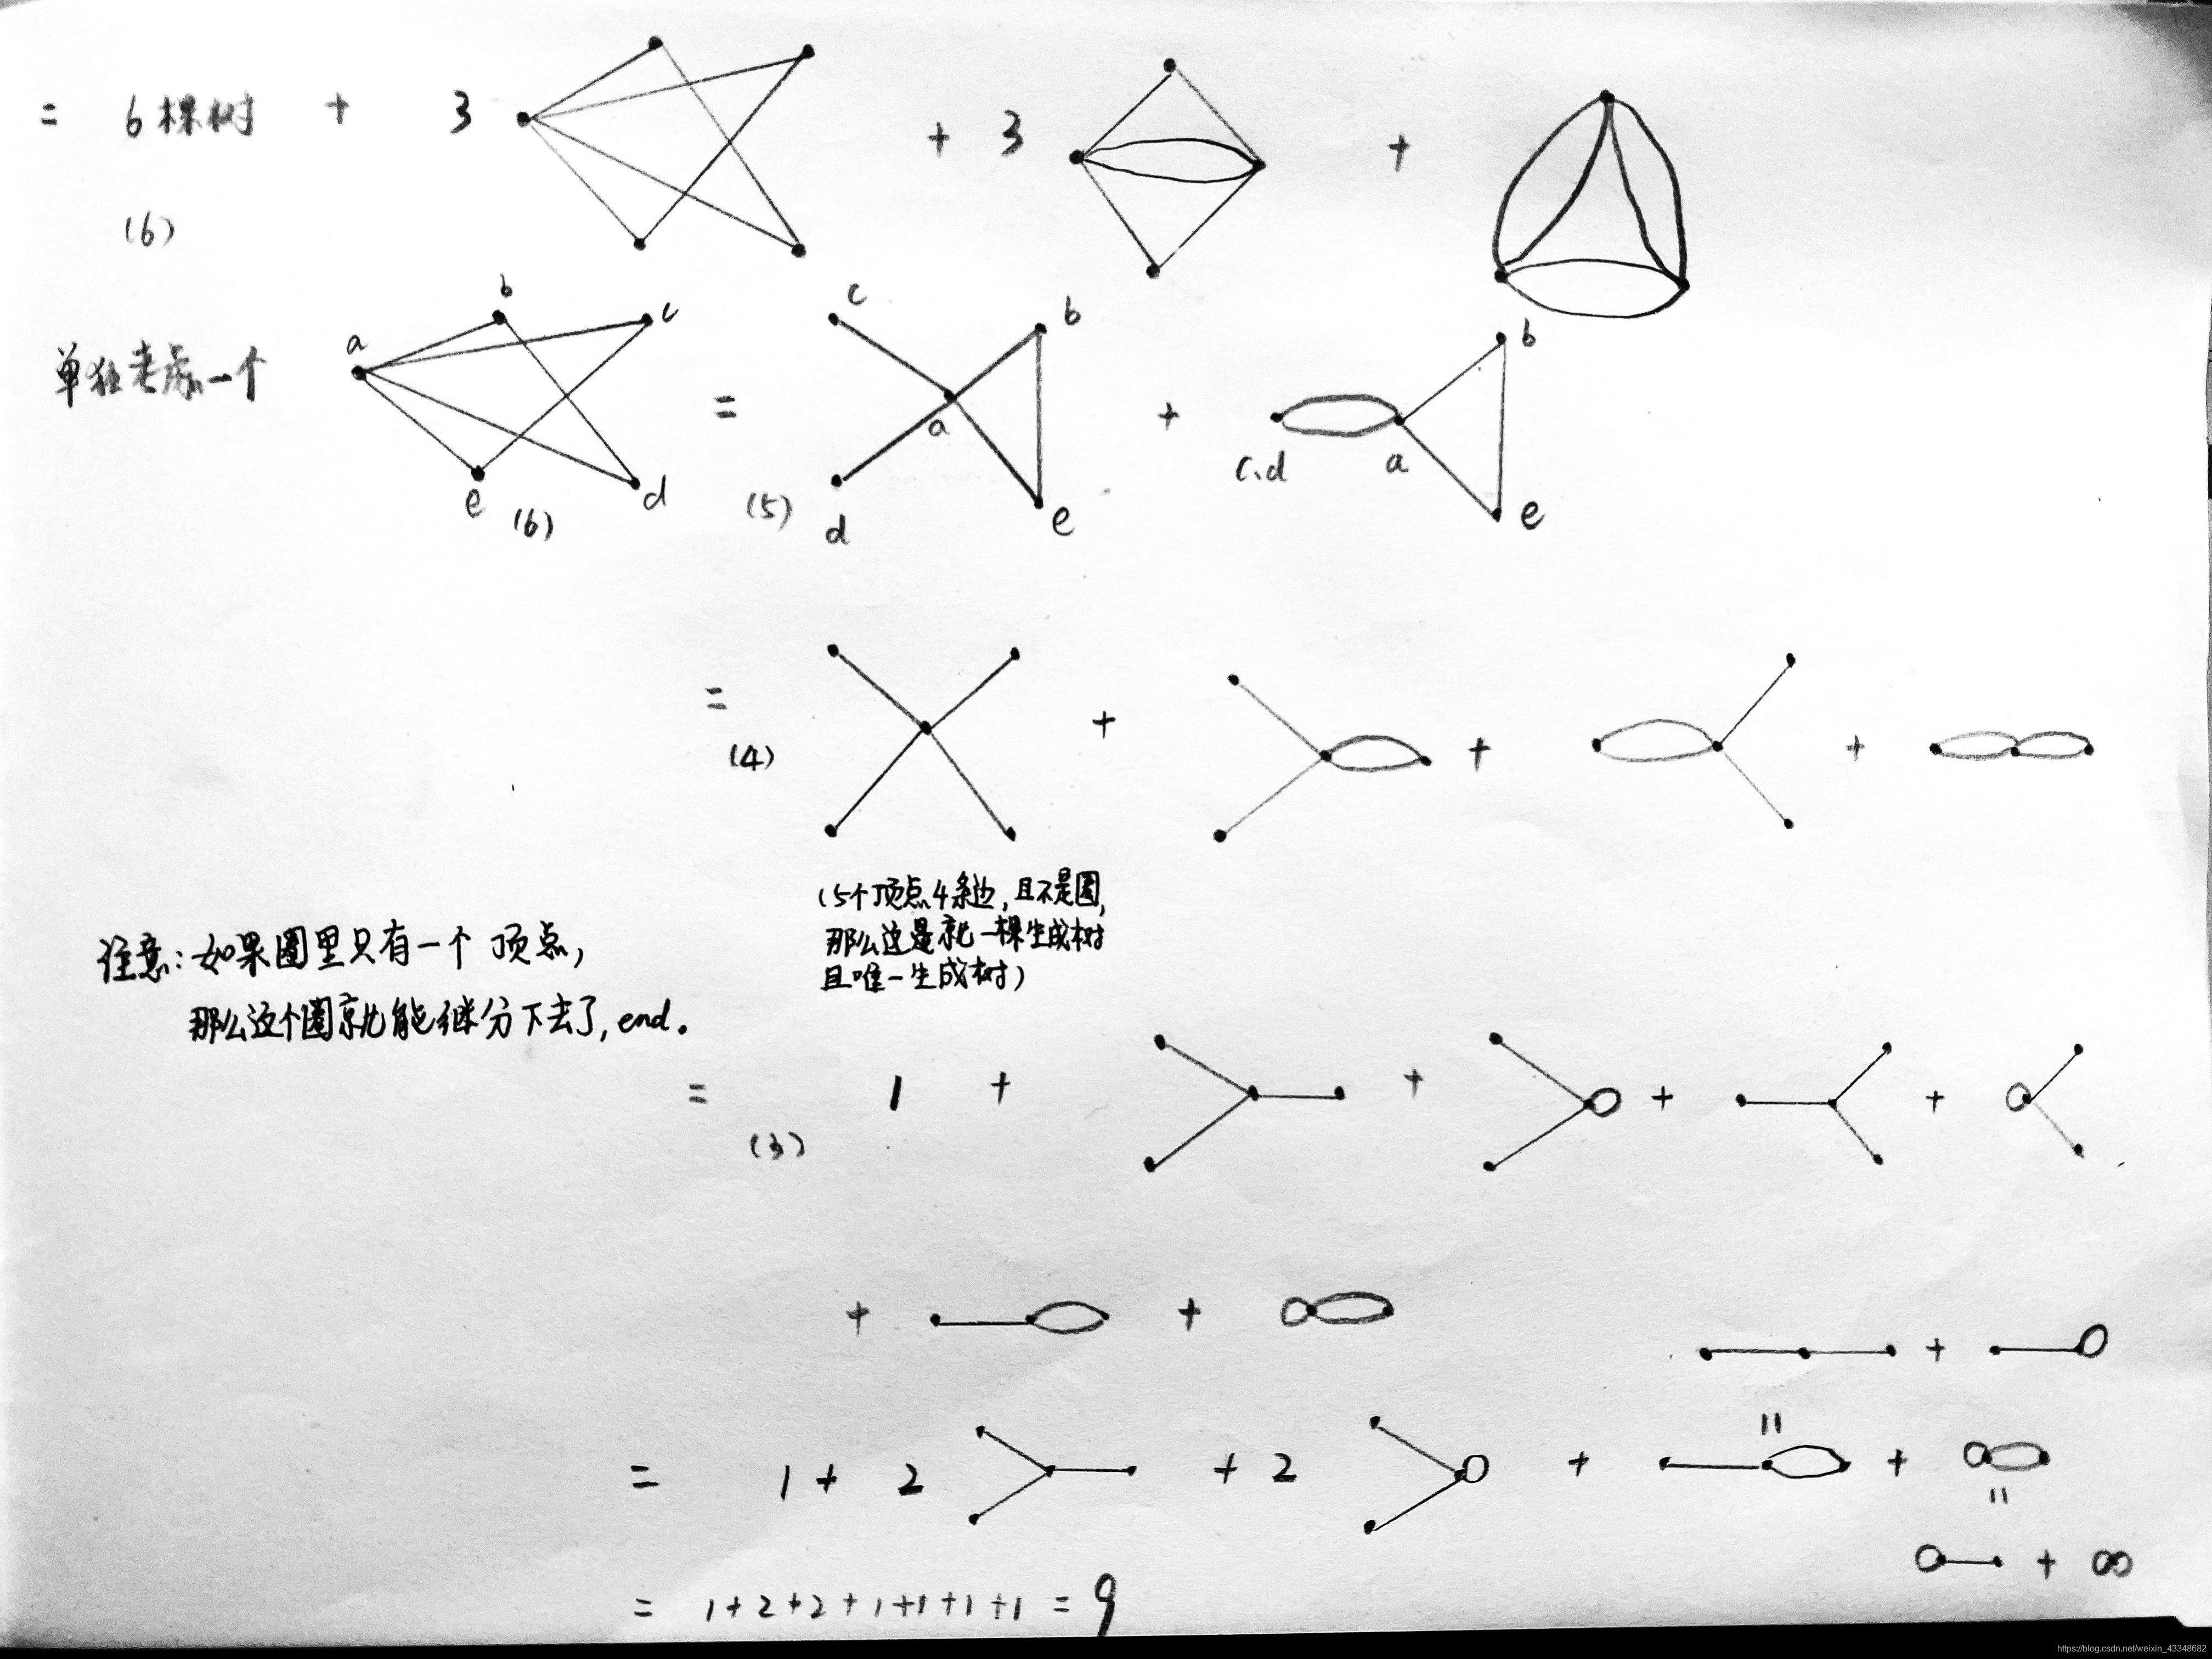 = 6棵树 + 3 + 3 +
(6)
单独考虑一个 a b c d e (6) = c b a d e (5) + c、d a b e
= (4) + + +
(5个顶点4条边,且不是圈,
那么这是就一棵生成树
且唯一生成树)
注意:如果圈里只有一个顶点,
那么这个圈就能继分下去了,end。
= (3) 1 + + + +
+ +
+
= 1 + 2 + 2 + +
= 
=
+ ∞
= 1+2+2+1+1+1+1 = 9
https://blog.csdn.net/weixin_43348682